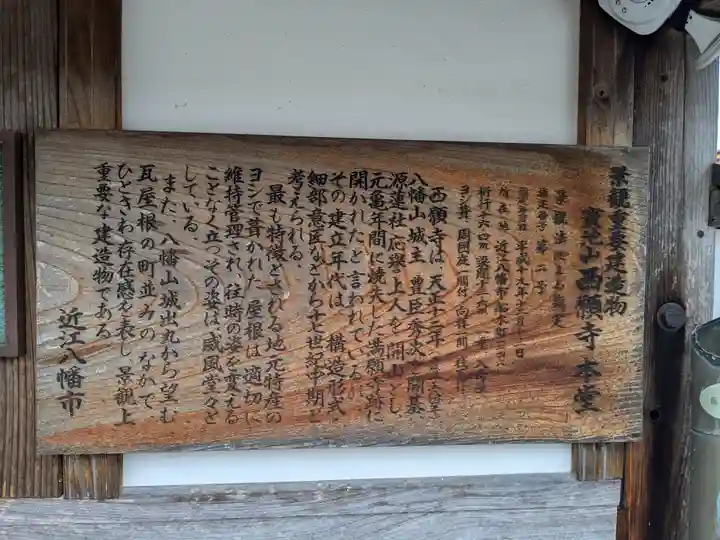 景観重要建造物
西願寺本堂
景観法による指定
指定番号 第二号
平成十九年
近江八幡市
西願寺は、天正十二年
八幡山城主、豊臣秀次を開基、
源蓮社応誉上人を開山とし、
元亀年間に焼失した満願寺跡に
開かれたと言われている。
その建立年代は、構造形式や
細部意匠などから十七世紀中期と
考えられる。
最も特徴とされる地元特産の
ヨシで葺かれた屋根は適切に
維持管理され、往時の姿を変える
ことなく立つその姿は威風堂々と
している。
また、八幡山城出丸から望む、
瓦屋根の町並みのなかで
ひときわ存在感を表し、景観上
重要な建造物である。
近江八幡市